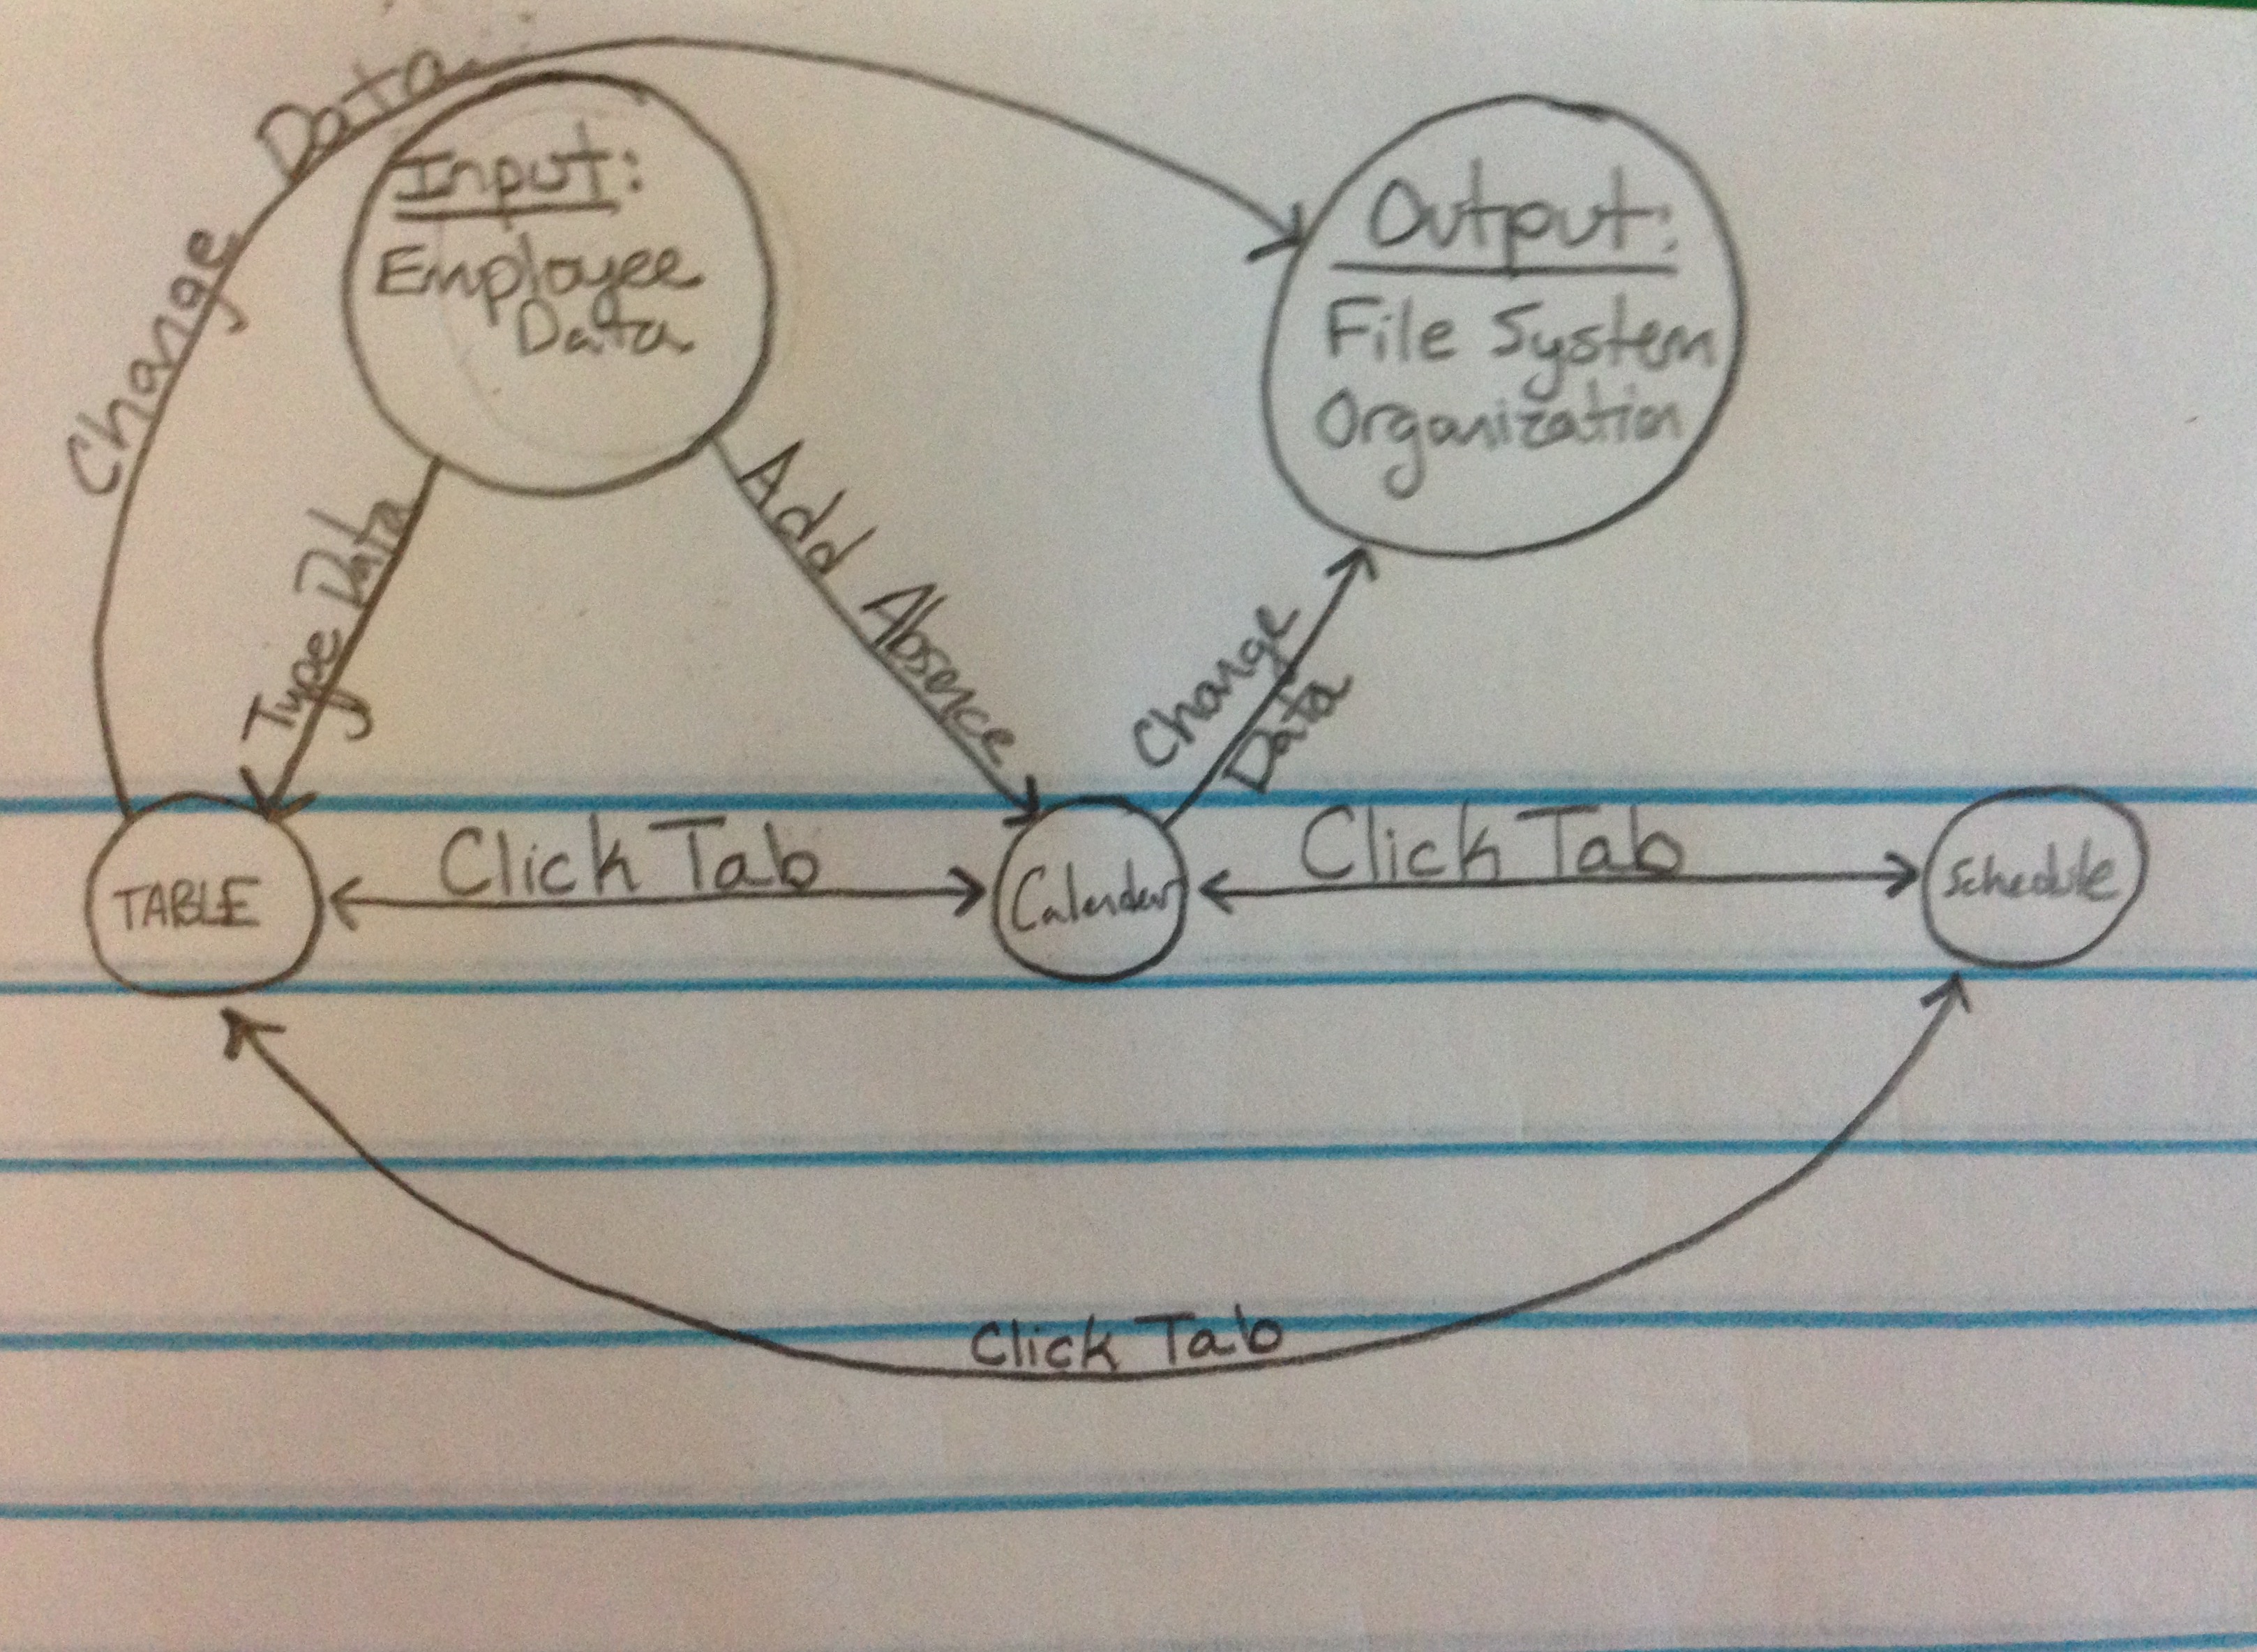 Change Data
Input:
Employee
Data
Output:
File System
Organization
Type Data
Add Absence
Change
Data
Click Tab
Click Tab
TABLE
Calender
Schedule
Click Tab